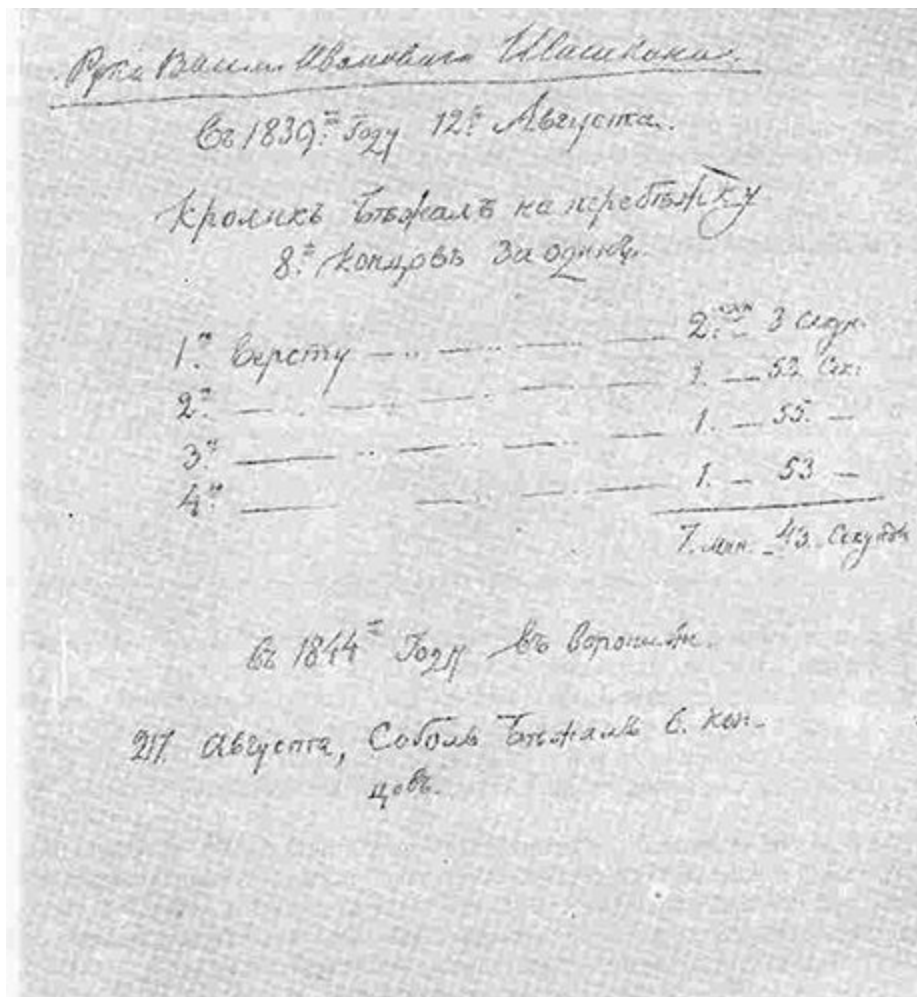 Рука Васил. Ивановича Шишкина.
Въ 1839.м Году 12.го Августа.
Кроликъ бѣжалъ на перебѣжку
8.м концовъ за одинъ.
1.ю версту 2. мин 3 секун.
2.ю 1. — 52. Сек:
3.ю 1. — 55. —
4.ю 1. — 53 —
7. мин. — 43. Секундъ
Въ 1844м Году въ Воронежѣ.
Августа, Соболь бѣжалъ 6. кон-
цовъ.